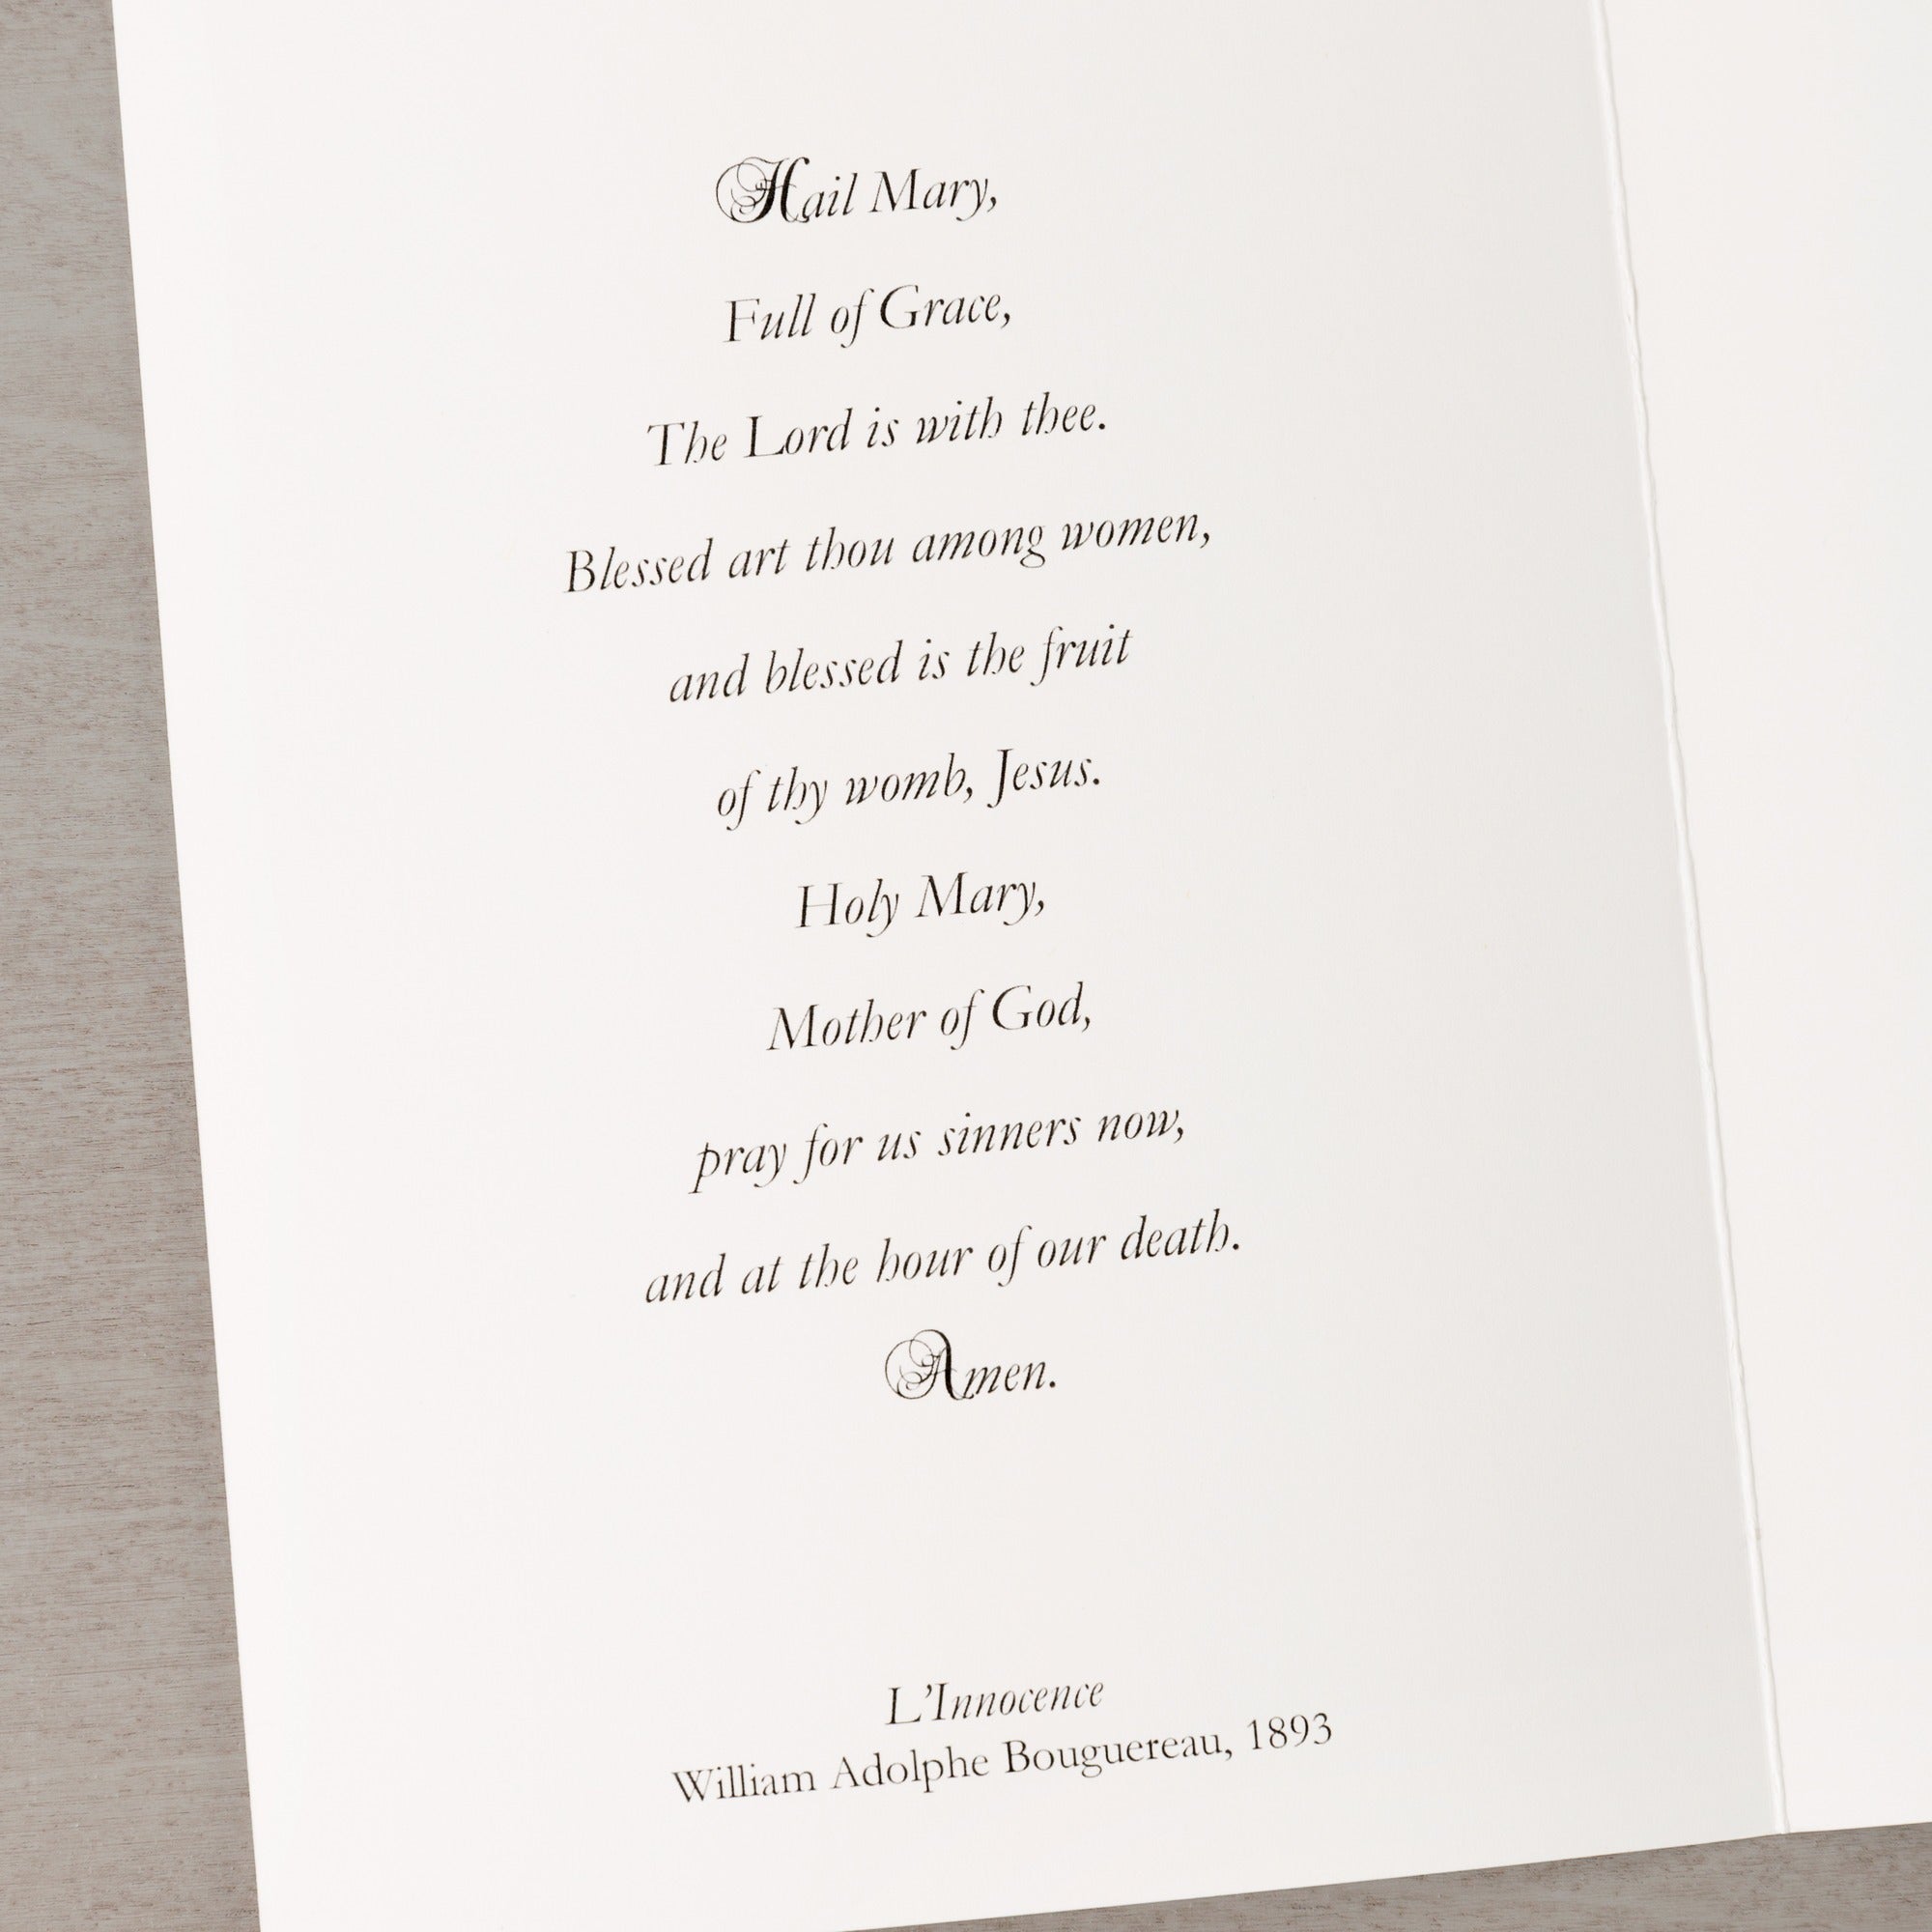 Hail Mary,
Full of Grace,
The Lord is with thee.
Blessed art thou among women,
and blessed is the fruit
of thy womb, Jesus.
Holy Mary,
Mother of God,
pray for us sinners now,
and at the hour of our death.
Amen.
L'Innocence
William Adolphe Bouguereau, 1893